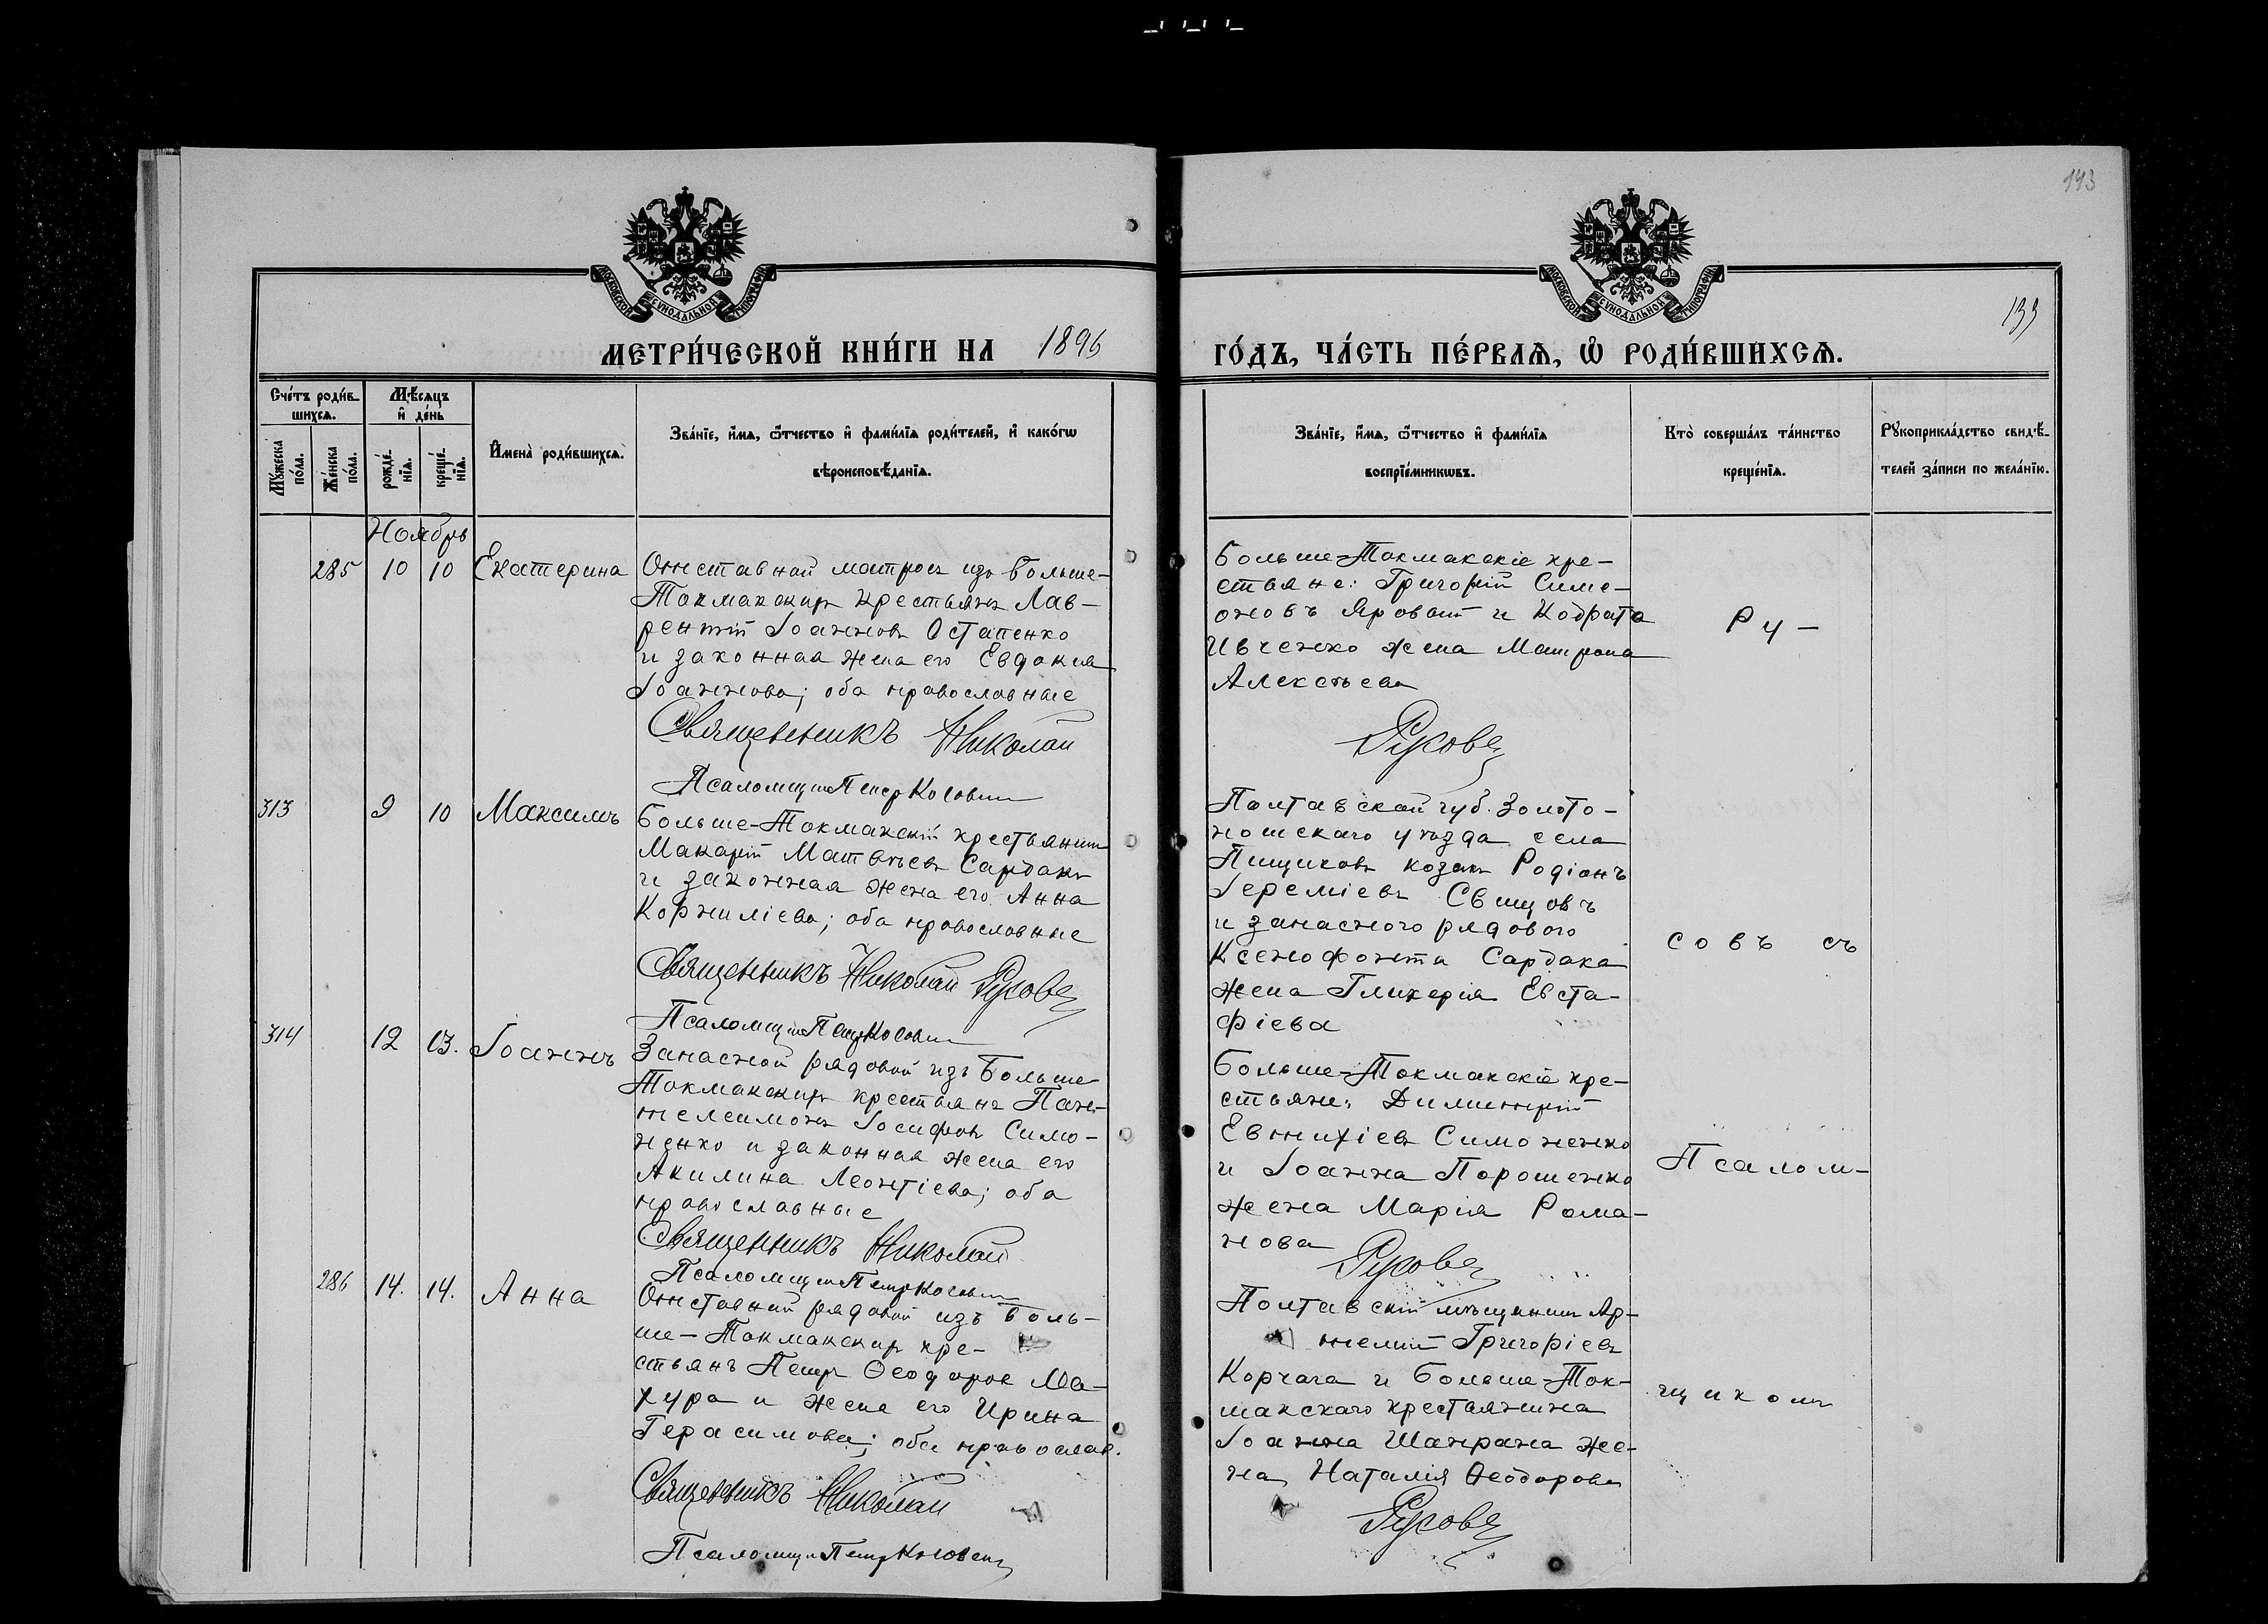 143
МОСКОВСКОЙ СУНОДАЛЬНОЙ ТИПОГРАФІИ
МОСКОВСКОЙ СУНОДАЛЬНОЙ ТИПОГРАФІИ
133
МЕТРИ́ЧЕСКОЙ КНИ́ГИ НА 1896
ГО́ДЪ, ЧА́СТЬ ПЕ́РВАѦ, Ѡ҆ РОДИ́ВШИХСѦ.
Сче́тъ роди́в-
шихсѧ.
Мꙋ́жеска
по́ла.
Же́нска
по́ла.
Мѣ́сѧцъ
и҆ де́нь
рожде́-
нїѧ.
креще́-
нїѧ.
И҆мена̀ роди́вшихсѧ.
Зва́нїе, и҆́мѧ, ѻ҆́тчество и҆ фами́лїѧ роди́телей, и҆ како́гѡ
вѣроисповѣ́данїѧ.
Зва́нїе, и҆́мѧ, ѻ҆́тчество и҆ фами́лїѧ
воспрїе́мникѡвъ.
Кто̀ соверша́лъ та́инство
креще́нїѧ.
Рꙋкоприкла́дство свидѣ́-
телей за́писи по жела́нїю.
Ноябрь
285 10 10 Екатерина
Отставной матросъ изъ Больше-
Токмакскихъ крестьянъ Лав-
рентій Іоанновъ Остапенко
и законная жена его Евдокія
Іоаннова; оба православные
Священникъ Николай
Псаломщикъ Петръ
Больше-Токмакскіе кре-
стьяне: Григорій Симе-
оновъ Яровой и Кодрата
Ивченко жена Матрона
Алексѣева
Русовъ
Ру-
313 9 10 Максимъ
Больше-Токмакскій крестьянинъ
Макарій Матвѣевъ Сардакъ
и законная жена его Анна
Корниліева; оба православные
Священникъ Николай Русовъ
Псаломщикъ Петръ
Полтавской губ. Золото-
ношскаго уѣзда села
Пищиковъ козакъ Родіонъ
Іереміевъ Свищовъ
и запасного рядового
Ксенофонта Сардака
жена Гликерія Евста-
фіева
совъ съ
314 12 13. Іоаннъ
Запасной рядовой изъ Больше-
Токмакскихъ крестьянъ Пан-
телеимонъ Іосифовъ Симо-
ненко и законная жена его
Акилина Леонтіева; оба
православные
Священникъ Николай
Псаломщикъ Петръ
Больше-Токмакскіе кре-
стьяне: Димитрій
Евтихіевъ Симоненко
и Іоанна Порошенко
жена Марія Рома-
нова
Русовъ
Псалом-
286 14. 14. Анна
Отставной рядовой изъ Боль-
ше-Токмакскихъ кре-
стьянъ Петръ Ѳеодоровъ Ма-
хура и жена его Ирина
Герасимова; оба православ.
Священникъ Николай
Псаломщикъ Петръ
Полтавскій мѣщанинъ Ар-
темій Григоріевъ
Корчага и Больше-Ток-
макскаго крестьянина
Іоанна Шапрана же-
на Наталія Ѳеодорова
Русовъ
щикомъ